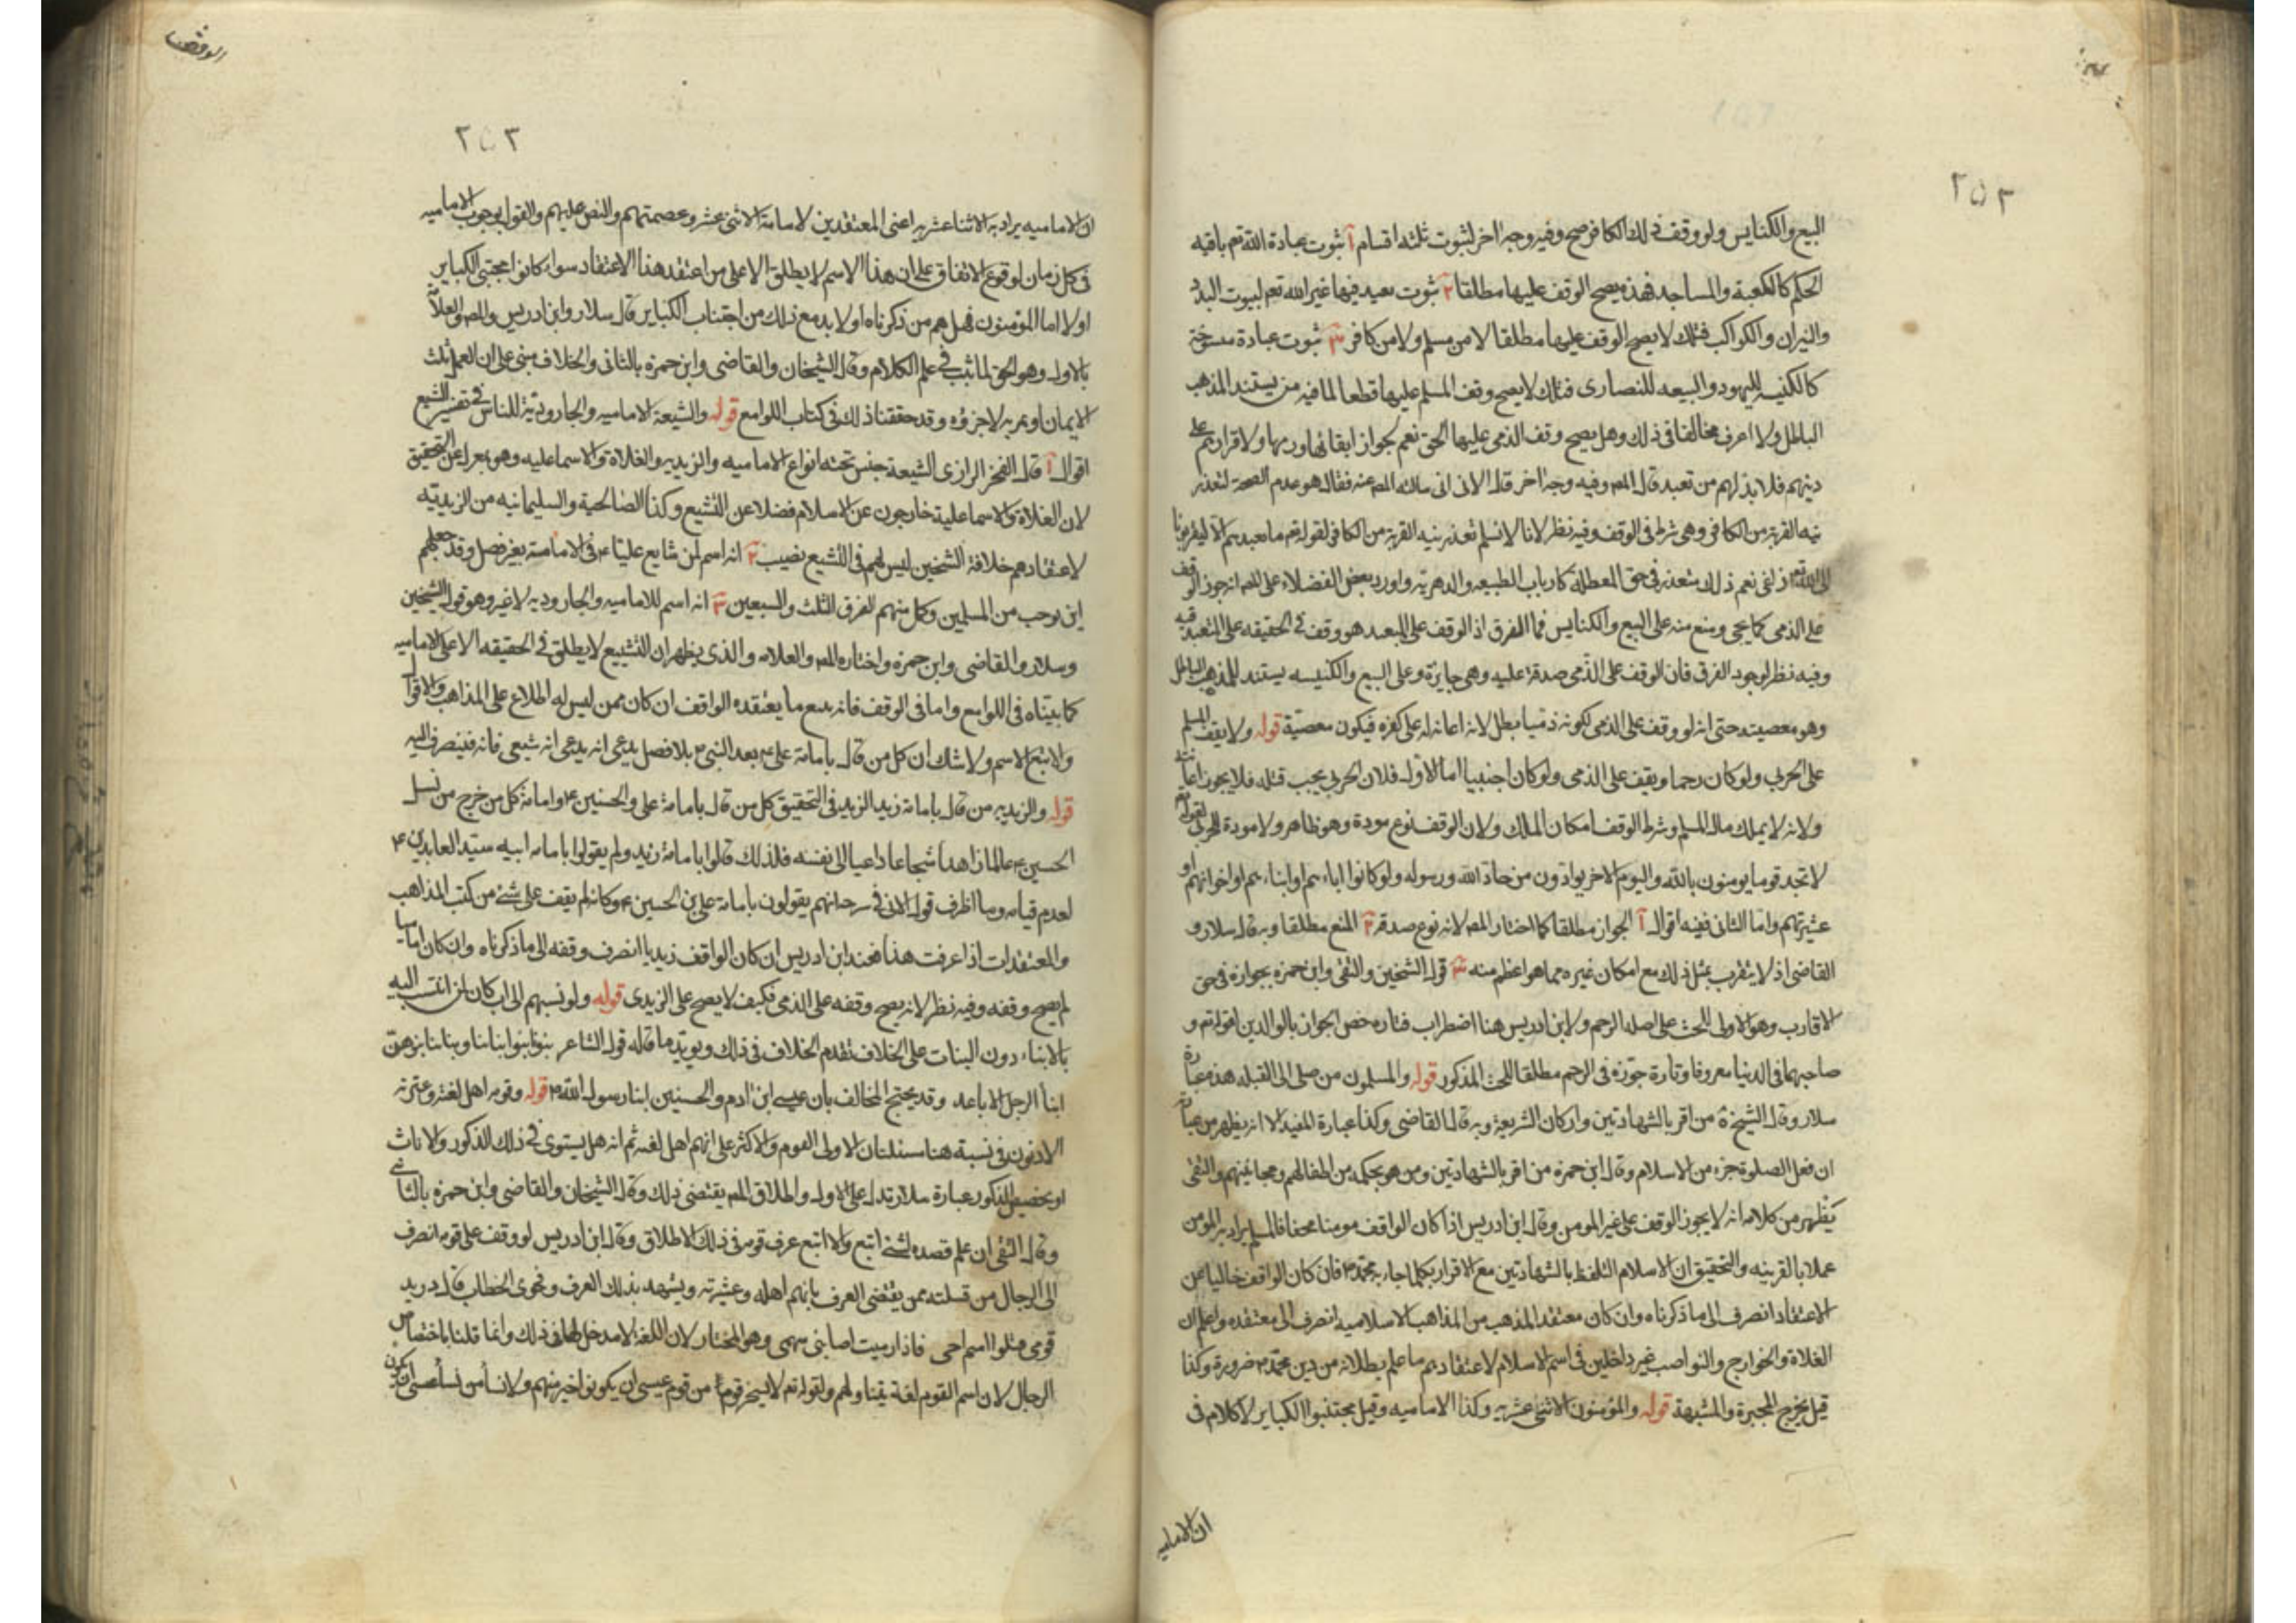 ٢٥٢
البيع والكنايس ولو وقف ذلك الكافر صح وفيه وجه اخر لثبوت ثلثه اقسام آ ثبوت عبادة الله تعم باقيه
الحكم كالكعبة والمساجد فهذه يصح الوقف عليها مطلقا ٢ ثبوت تعبد فيها غير الله تعم لبيوت البد
والنيران والكواكب فتلك لا يصح الوقف عليها مطلقا لا من مسلم ولا من كافر ٣ ثبوت عبادة منسوخة
كالكنيسه لليهود والبيعه للنصارى فتلك لا يصح وقف المسلم عليها قطعا لما فيه من يستند المذهب
الباطل ولا اعرف مخالفا فى ذلك وهل يصح وقف الذمى عليها الحق نعم لجواز ابقائها ورمها ولاقرارهم على
دينهم فلا بد لهم من تعبد قال المصـ وفيه وجه اخر قال الابى انى سالت المصـ عنه فقال هو عدم الصحة لتعذر
نيه القربة من الكافر وهى شرط فى الوقف وفيه نظر لانا لا نسلم تعذر نيه القربة من الكافر لقوله تعم ما نعبدهم الا ليقربونا
الى الله زلفى نعم ذلك متعذر فى حق المعطلة كارباب الطبيعه والدهريه واورد بعض الفضلاء على المصـ انه جوز الوقف
على الذمى كما يجى ومنع منه على البيع والكنايس فما الفرق اذ الوقف على البيعه هو وقف فى الحقيقه على المتعبد فيه
وفيه نظر لوجود الفرق فان الوقف على الذمى صدقة عليه وهى جايزة وعلى البيع والكنيسه يستند للمذهب الباطل
وهو معصيت حتى انه لو وقف على الذمى لكونه ذميا بطل لانه اعانه له على كفره فيكون معصيّة قوله ولا يقف المسلم
على الحربى ولو كان رحما ويقف على الذمى ولو كان اجنبيا اما الاول فلان الحربى يجب قتله فلا يجوز اعانته
ولانه لا يملك مال المسلم وشرط الوقف امكان الملك ولان الوقف نوع مودة وهو ظاهر ولا مودة للحربى لقوله تعم
لا تجد قوما يومنون بالله واليوم الاخر يوادّون من حادّ الله ورسوله ولو كانوا اباءهم او ابناءهم او اخوانهم او
عشيرتهم واما الثانى ففيه اقوال آ الجواز مطلقا كما اختاره المصـ لانه نوع صدقه ٢ المنع مطلقا وبه قال سلار و
القاضى اذ لا يتقرب بمثل ذلك مع امكان غيره مما هو اعظم منه ٣ قول الشيخين والتقى وابن حمزه بجوازه فى حق
الاقارب وهو الاولى للحث على صله الرحم ولابن ادريس هنا اضطراب فتاره خص الجواز بالوالدين لقوله تعم و
صاحبهما فى الدنيا معروفا وتارة جوّزه فى الرحم مطلقا للحث المذكور قوله والمسلمون من صلى الى القبله هذه عبارة
سلار وقال الشيخ ره من اقر بالشهادتين واركان الشريعة وبه قال القاضى وكذا عبارة المفيد الا انه يظهر من عبارته
ان فعل الصلوة جزء من الاسلام وقال ابن حمزه من اقر بالشهادتين ومن هو بحكمه من اطفالهم ومجانينهم والتقى
يظهر من كلامه انه لا يجوز الوقف على غير المومن وقال ابن ادريس اذا كان الواقف مومنا محقا فالمسلم يراد به المومن
عملا بالقرينه والتحقيق ان الاسلام التلفظ بالشهادتين مع الاقرار بكلما جاء به محمد ص فان كان الواقف خاليا عن
الاعتقاد انصرف الى ما ذكرناه وان كان معتقد المذهب من المذاهب الاسلاميه انصرف الى معتقده واعلم ان
الغلاة والخوارج والنواصب غير داخلين فى اسم الاسلام لاعتقادهم ما علم بطلانه من دين محمد ص ضرورة وكذا
قيل يخرج المجبرة والمشبهة قوله والمؤمنون الاثنى عشريه وكذا الاماميه وقيل مجتنبوا الكباير لا كلام فى
ان الاماميه
الوقف
٢٥٣
ان الاماميه يراد به الاثنا عشريه اعنى المعتقدين لامامة الاثنى عشر وعصمتهم والنص عليهم والقول بوجوب الاماميه
فى كل زمان لوقوع الاتفاق على ان هذا الاسم لا يطلق الا على من اعتقد هذا الاعتقاد سواء كانوا مجتبى الكباير
اولا اما المؤمنون فهل هم من ذكرناه او لا بد مع ذلك من اجتناب الكباير قال سلار وابن ادريس والمصـ والعلامة
بالاول وهو الحق لما ثبت فى علم الكلام وقال الشيخان والقاضى وابن حمزه بالثانى والخلاف مبنى على ان العمل ثلث
الايمان او ثمرته لا جزؤه وقد حققنا ذلك فى كتاب اللوامع قوله والشيعة الاماميه والجاروديّة للناس فى تفسير الشيع
اقوال آ قال الفخر الرازى الشيعة جنس تحته انواع الاماميه والزيديه والغلاة والاسماعليه وهو بمعزل عن التحقيق
لان الغلاة والاسماعلية خارجون عن الاسلام فضلا عن التشيع وكذا الصالحية والسليمانيه من الزيديّه
لاعتقادهم خلافة الشيخين ليس لهم فى التشيع نصيب ٢ انه اسم لمن شايع عليا ع فى الامامة بغير فصل وقد جعلهم
ابن نوبخت من المسلمين وكل منهم الفرق الثلث والسبعين ٣ انه اسم للاماميه والجاروديه لا غير وهو قول الشيخين
وسلار والقاضى وابن حمزه واختاره المصـ والعلامه والذى يظهر ان التشيع لا يطلق فى الحقيقه الا على الاماميه
كما بيناه فى اللوامع واما فى الوقف فانه يتبع ما يعتقده الواقف ان كان ممن ليس له اطلاع على المذاهب والاقوال
والا تبع الاسم ولا شك ان كل من قال بامامة على ع بعد النبى ص بلا فصل يدعى انه يدعى انه شيعى فانه فينصرف اليه
قوله والزيديه من قال بامامة زيد الزيديه فى التحقيق كل من قال بامامة على والحسنين ع وامامة كل من خرج من نسل
الحسين ع عالما زاهدا شجاعا داعيا الى نفسه فلذلك قالوا بامامة زيد ولم يقولوا بامامه ابيه سيّد العابدين ع
لعدم قيامه وما اظرف قول الابى فى بامامة على بن الحسين ع وكانه لم يقف على شئ من كتب المذاهب
والمعتقدات اذا عرفت هذا فعند ابن ادريس ان كان الواقف زيديا انصرف وقفه الى ما ذكرناه وان كان اماميا
لم يصح وقفه وفيه نظر لانه يصح وقفه على الذمى فكيف لا يصح على الزيدى قوله ولو نسبهم الى اب كان لمن انتسب اليه
بالابناء دون البنات على الخلاف تقدم الخلاف فى ذلك ويويّد ما قاله قول الشاعر بنونا بنوا ابنائنا وبناتنا بنوهن
ابنا الرجل الاباعد وقد يحتج المخالف بان عيسى ابن ادم والحسنين ابنا رسول الله ص قوله وقومه اهل لغته وعترته
الادنون فى نسبة هنا مسئلتان الاولى القوم والاكثر على انهم اهل لغته ثم انه هل يستوى فى ذلك الذكور والاناث
او يختص بالذكور عبارة سلار تدل على الاول واطلاق المصـ يقتضى ذلك وقال الشيخان والقاضى وابن حمزه بالثانى
وقال التقى ان علم قصده لشئ اتبع والا اتبع عرف قومه فى ذلك الاطلاق وقال ابن ادريس لو وقف على قومه انصرف
الى الرجال من قبيلته ممن يقتضى العرف بانهم اهله وعشيرته ويشهد بذلك العرف وفحوى الخطاب قال دريد
قومى قتلوا اميم اخى فاذا رميت اصابنى سهمى وهو المختار لان اللغة لا مدخل لها فى ذلك وانما قلنا باختصاص
الرجال لان اسم القوم لغة يتناولهم ولقوله تعم لا يسخر قوم من قوم عسى ان يكونوا خيرا منهم ولا نساء من نساء عسى ان يكن